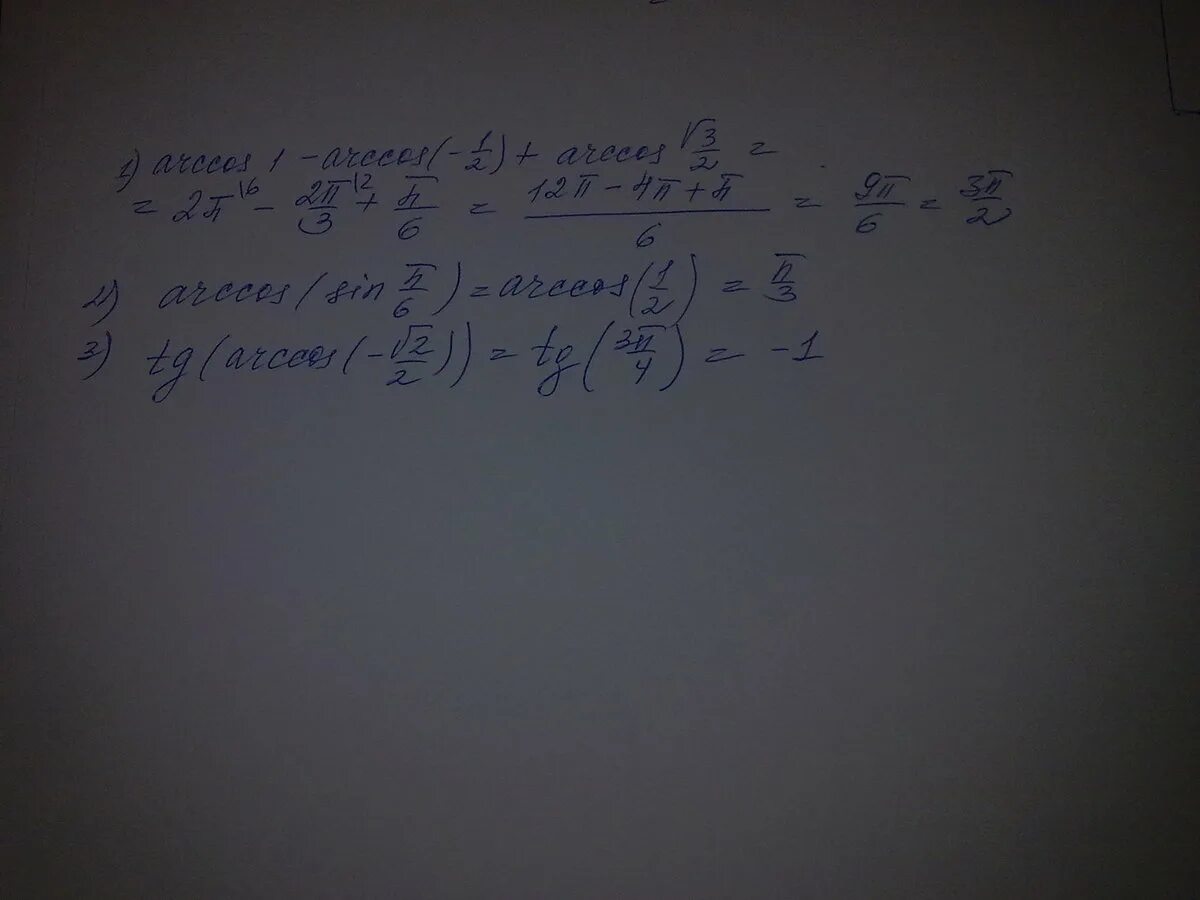 1) arccos 1 - arccos(-1/2) + arccos √3/2 =
= 2π\6 - 2π/3\2 + π/6 = (12π - 4π + π)/6 = 9π/6 = 3π/2
2) arccos(sin π/6) = arccos(1/2) = π/3
3) tg(arccos(-√2/2)) = tg(3π/4) = -1